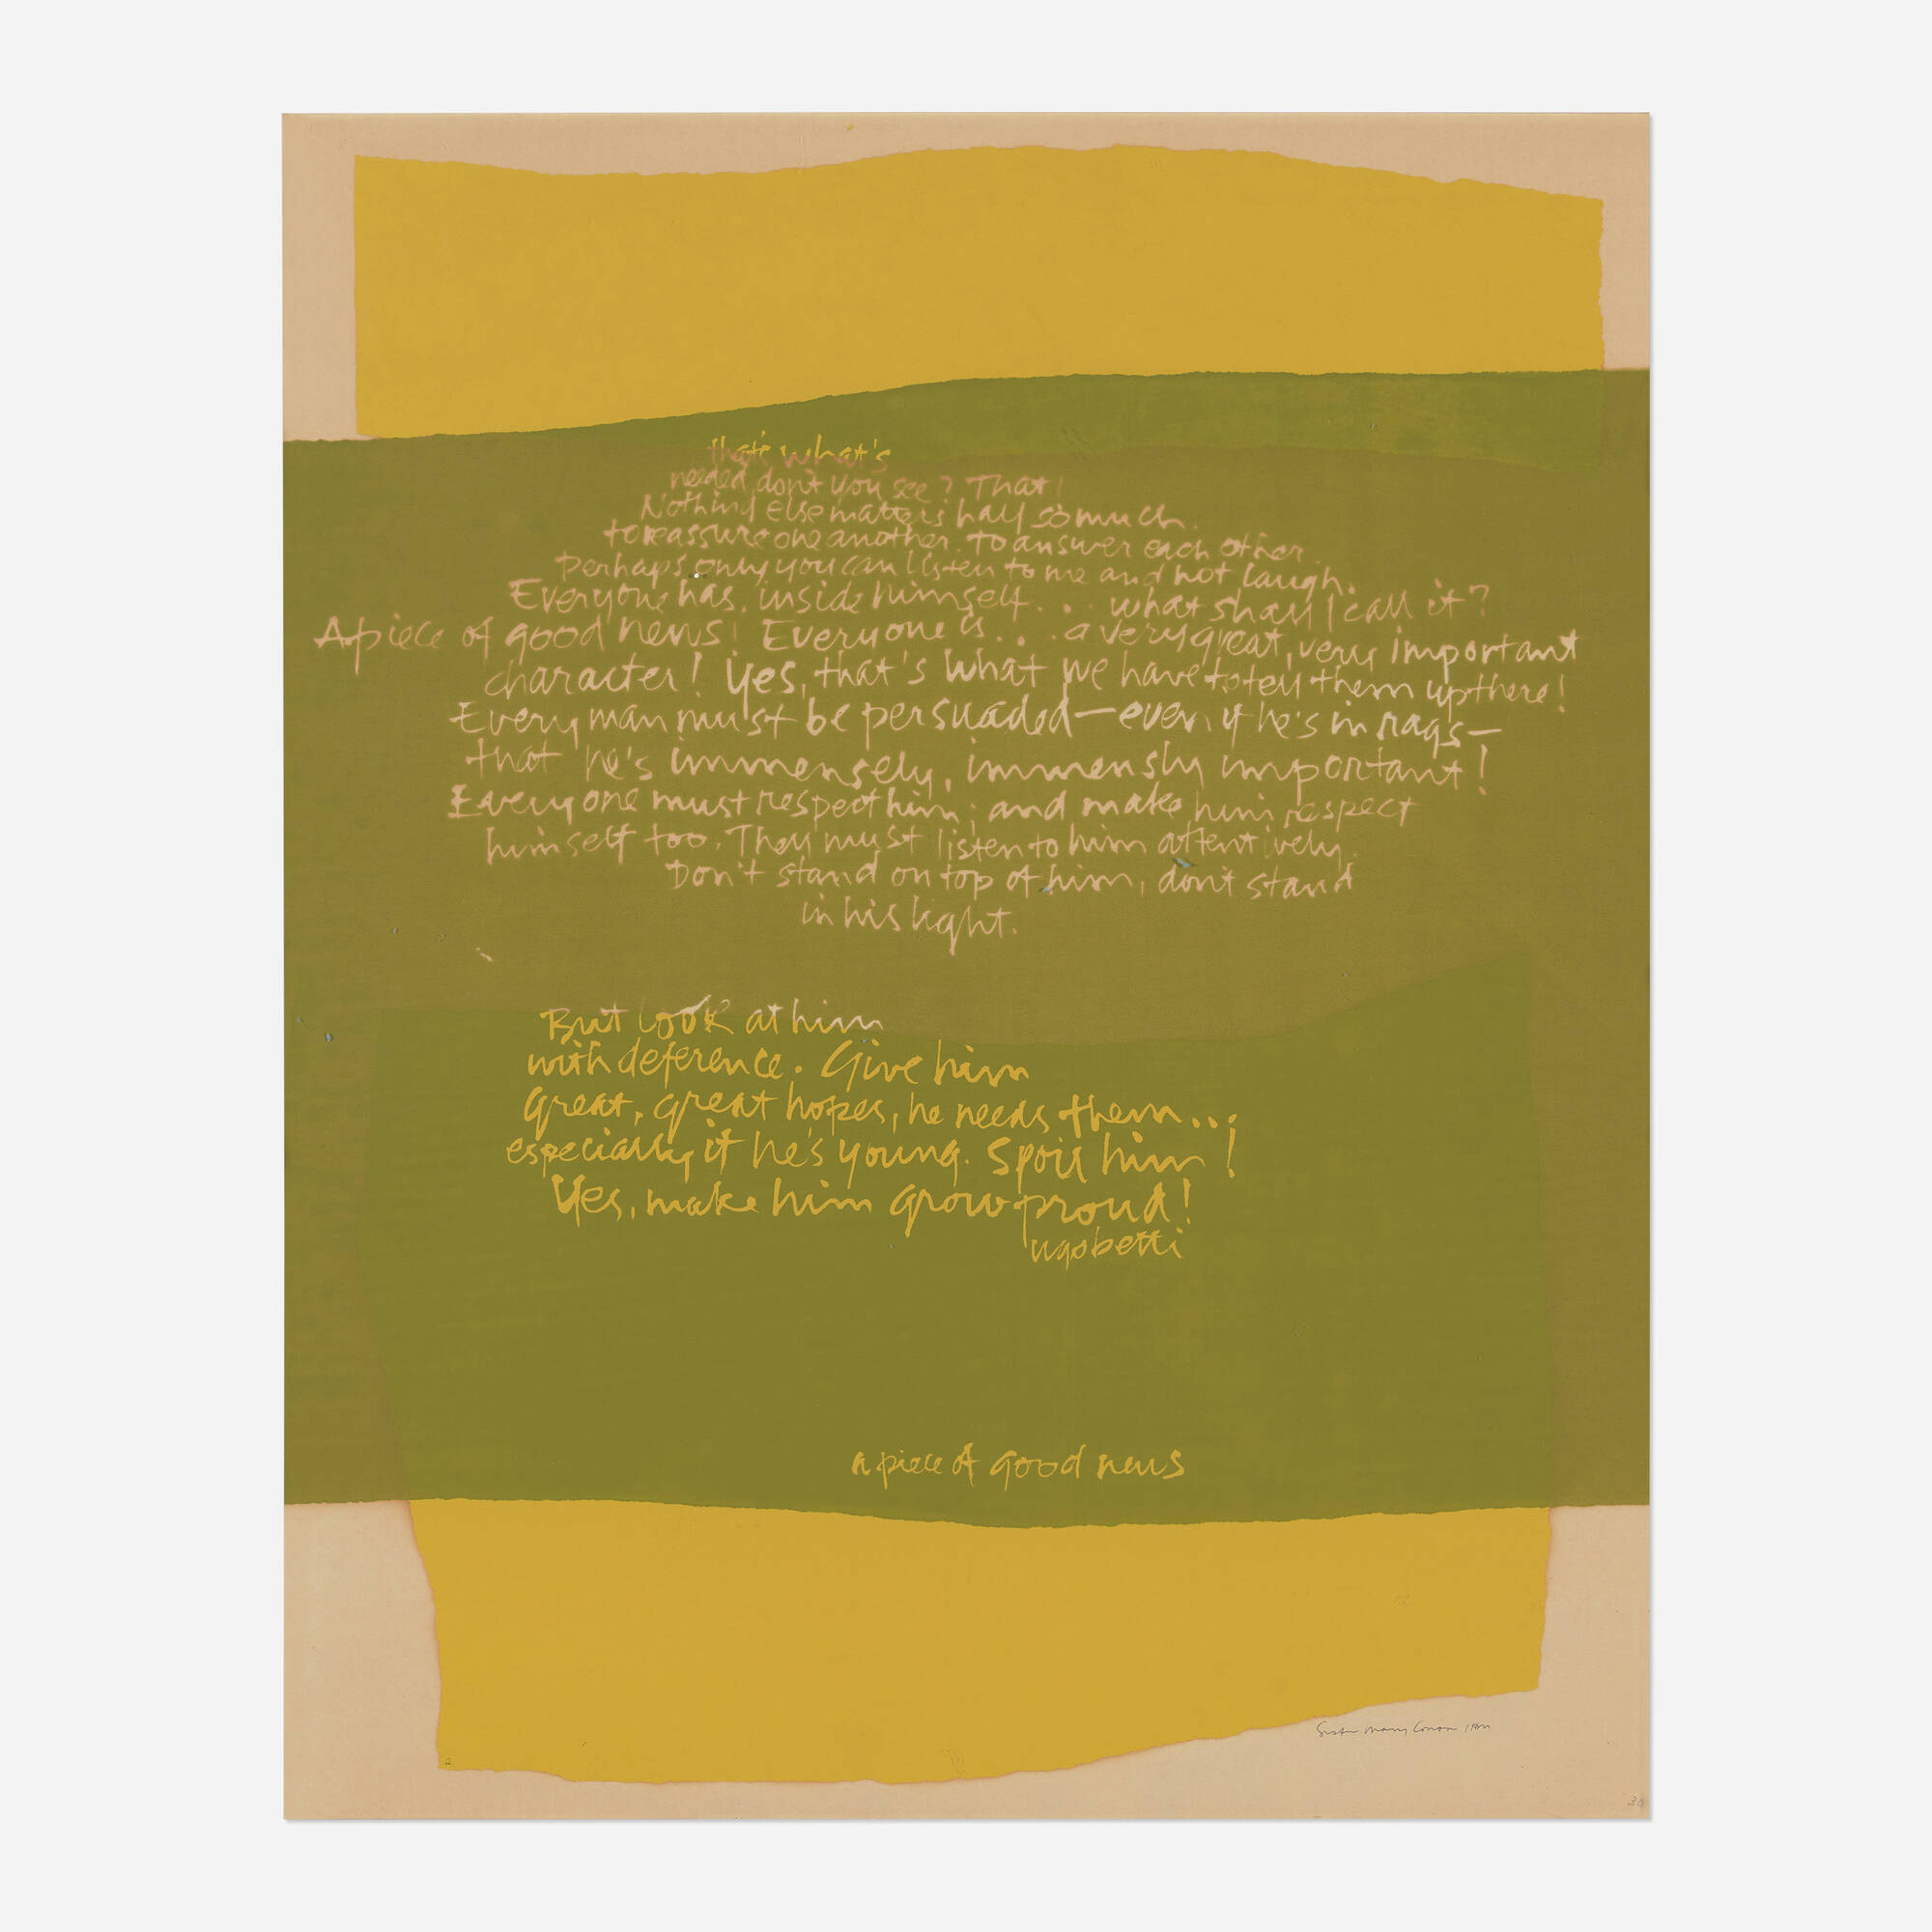 that's what's
needed, don't you see? That!
Nothing else matters half so much.
to reassure one another. to answer each other.
Perhaps only you can listen to me and not laugh.
Everyone has, inside himself... what shall I call it?
A piece of good news! Everyone is... a very great, very important
character! Yes, that's what we have to tell them up there!
Every man must be persuaded—even if he's in rags—
that he's immensely, immensly important!
Everyone must respect him; and make him respect
himself too. They must listen to him attentively.
Don't stand on top of him, don't stand
in his light.
But look at him
with deference. Give him
Great, great hopes, he needs them...
especially if he's young. Spoil him!
Yes, make him grow proud!
ugo betti
a piece of good news
Sister Mary Corita IHM